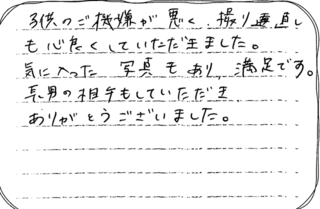 子供のご機嫌が悪く、撮り直し
も心良くしていただきました。
気に入った 写真もあり、満足です。
長男の相手もしていただき
ありがとうございました。